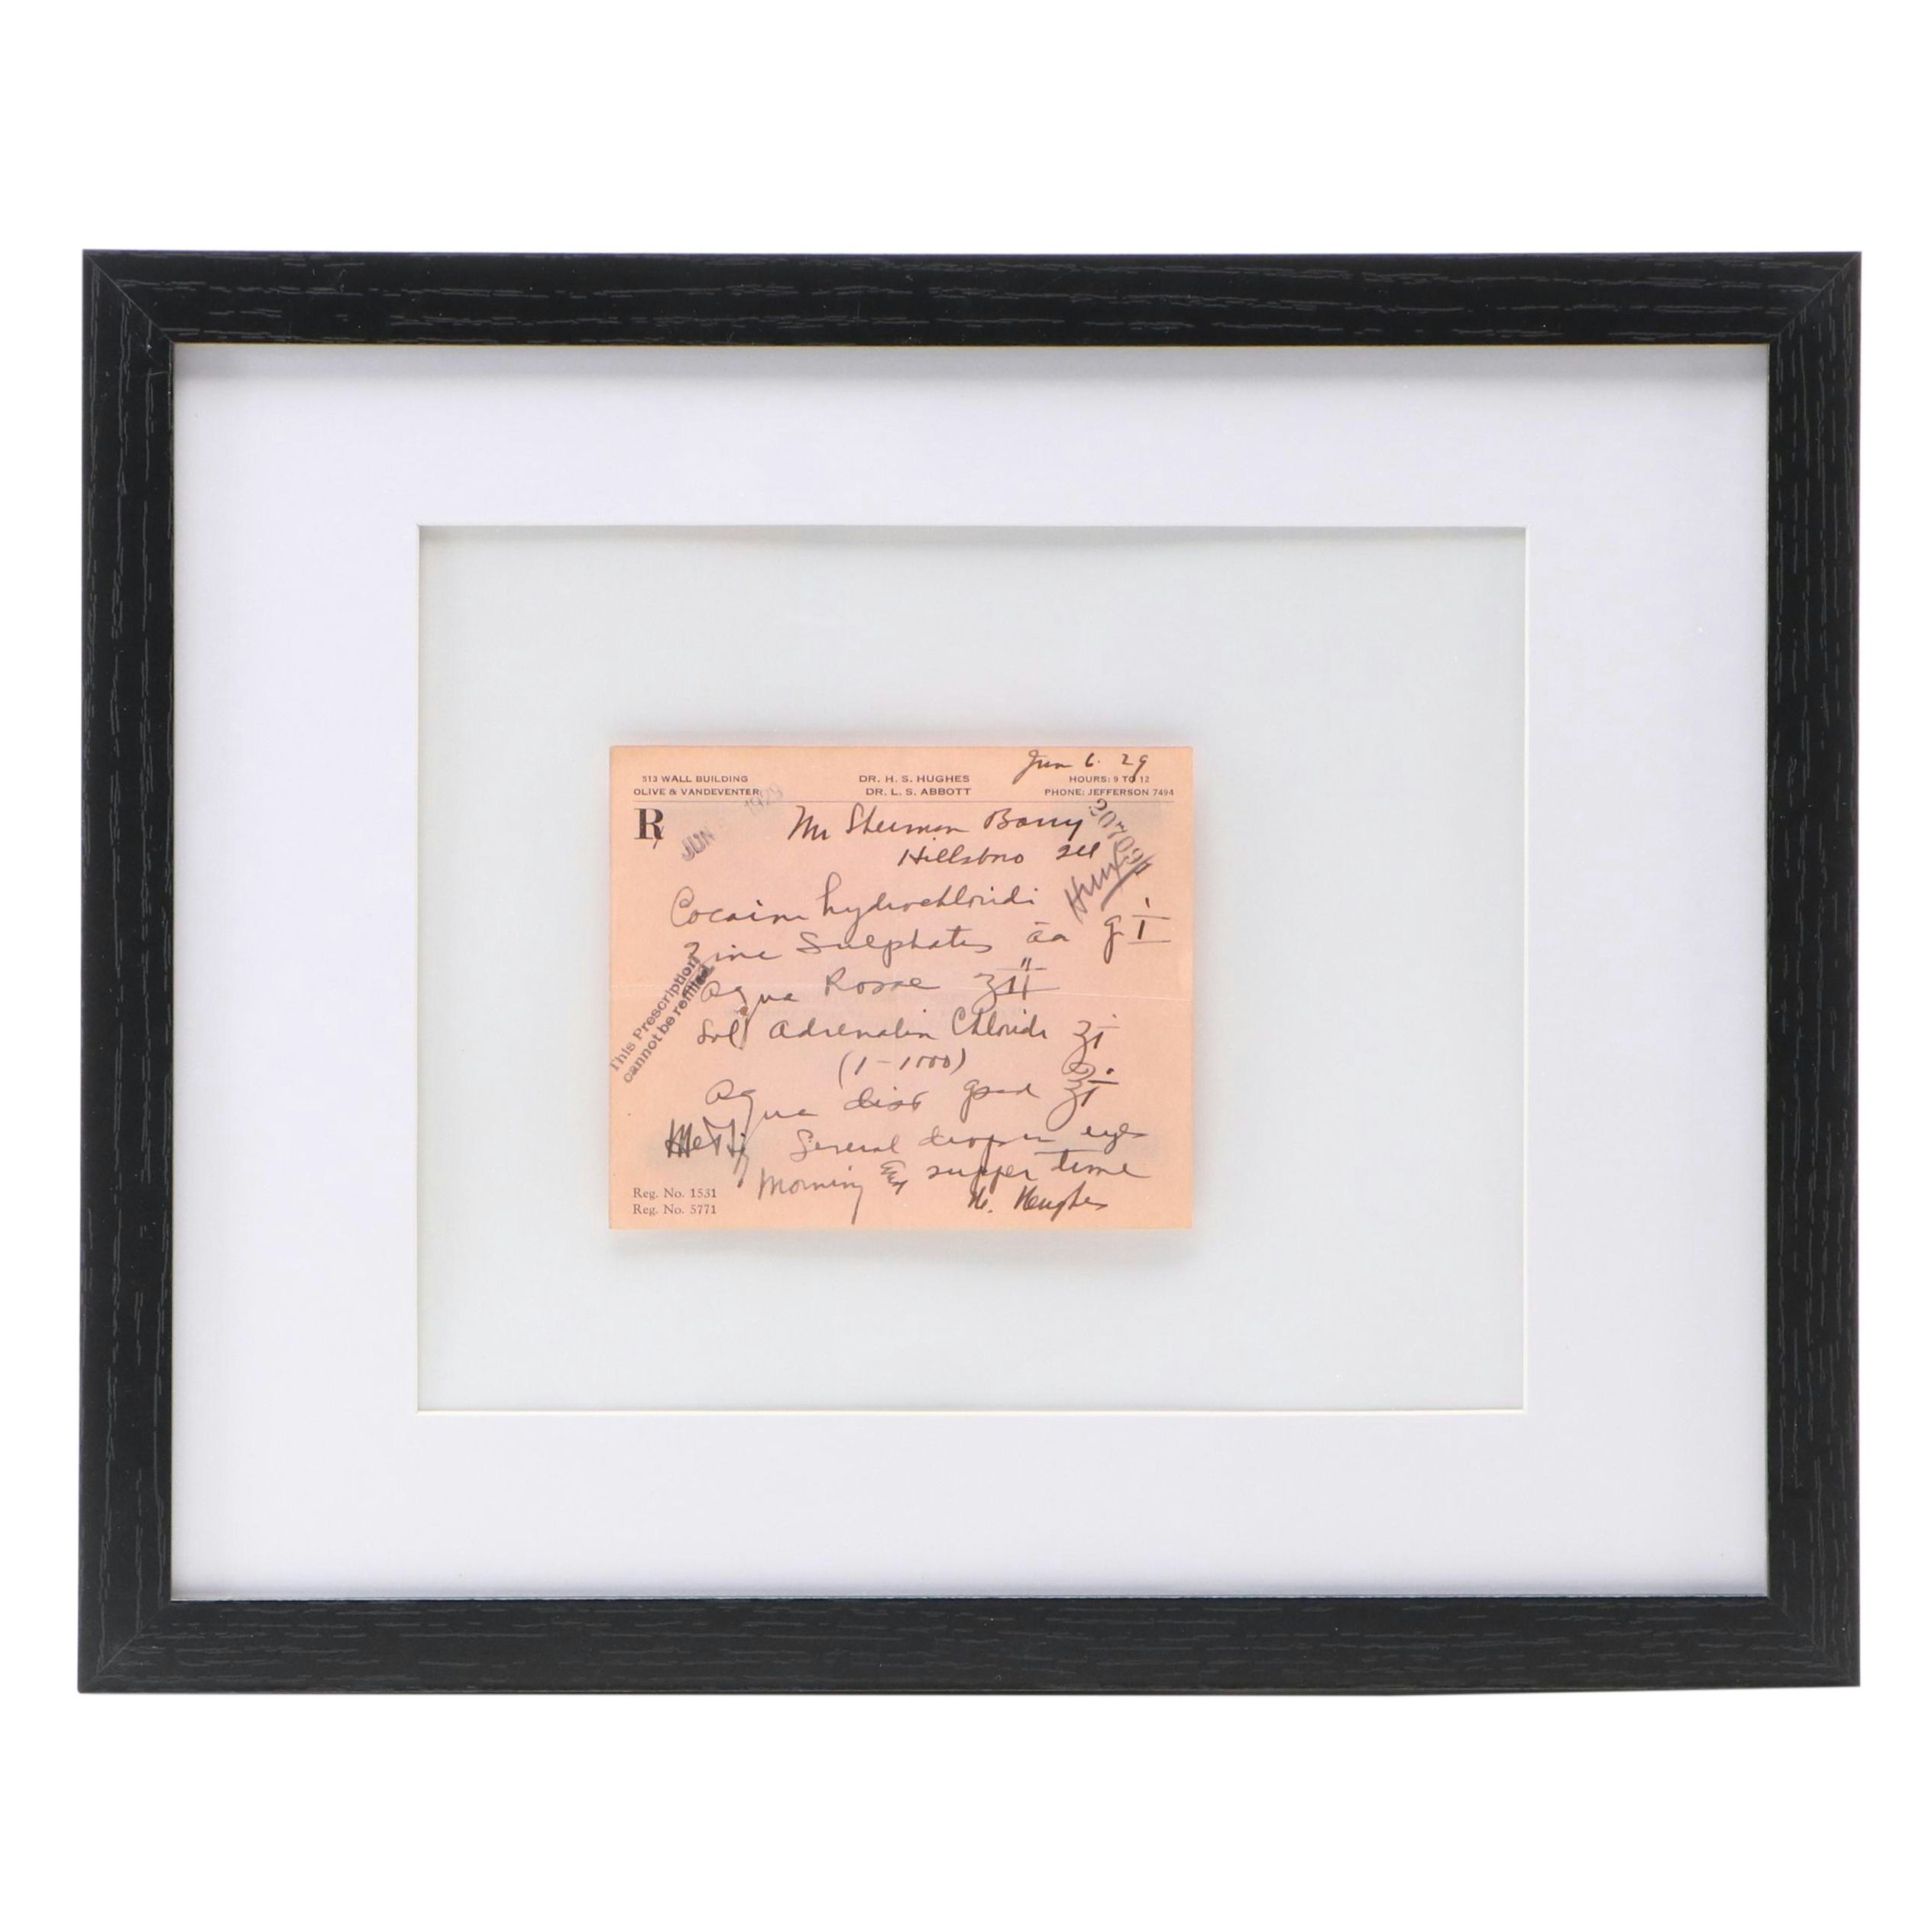 Jun 6. 29
513 WALL BUILDING
OLIVE & VANDEVENTER
DR. H. S. HUGHES
DR. L. S. ABBOTT
HOURS: 9 TO 12
PHONE: JEFFERSON 7494
Rx
JUN 1929
Mr Sherman Barry
Hillsboro Ill
207094
Cocaine hydrochloridi
Zinc Sulphatis āā g i
Aqua Rosae ʒ ii
Sol Adrenalin Chloride ʒ i
(1-1000)
Aqua dist qsad ℥ i
This Prescription
cannot be refilled
M et Sig Several drops in eyes
Morning & supper time
H. Hughes
Reg. No. 1531
Reg. No. 5771